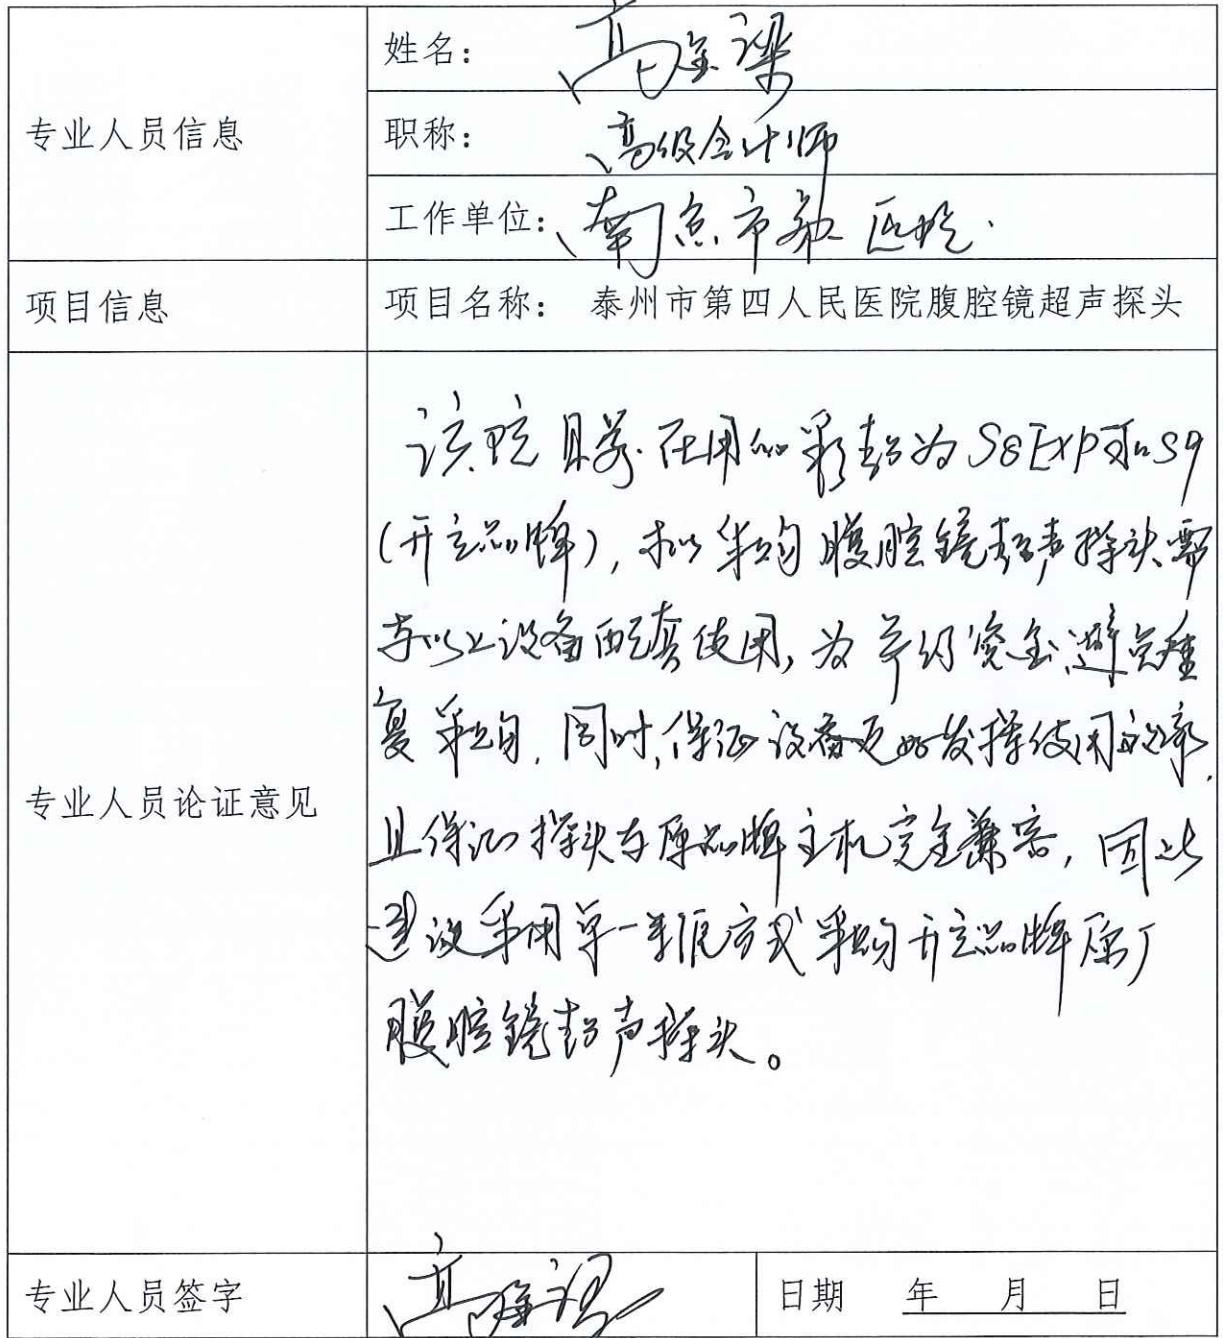 专业人员信息
姓名：高
职称：高级会计师
工作单位：南京市 医院
项目信息
项目名称： 泰州市第四人民医院腹腔镜超声探头
专业人员论证意见
该院目前在用的彩超为S8EXP和S9
（开立品牌），拟采购腹腔镜超声探头需
与以上设备配套使用，为节约资金避免重
复采购，同时，保证设备更好发挥使用效率，
且保证探头与原品牌主机完全兼容，因此
建议采用单一来源方式采购开立品牌原厂
腹腔镜超声探头。
专业人员签字
高
日期 年 月 日